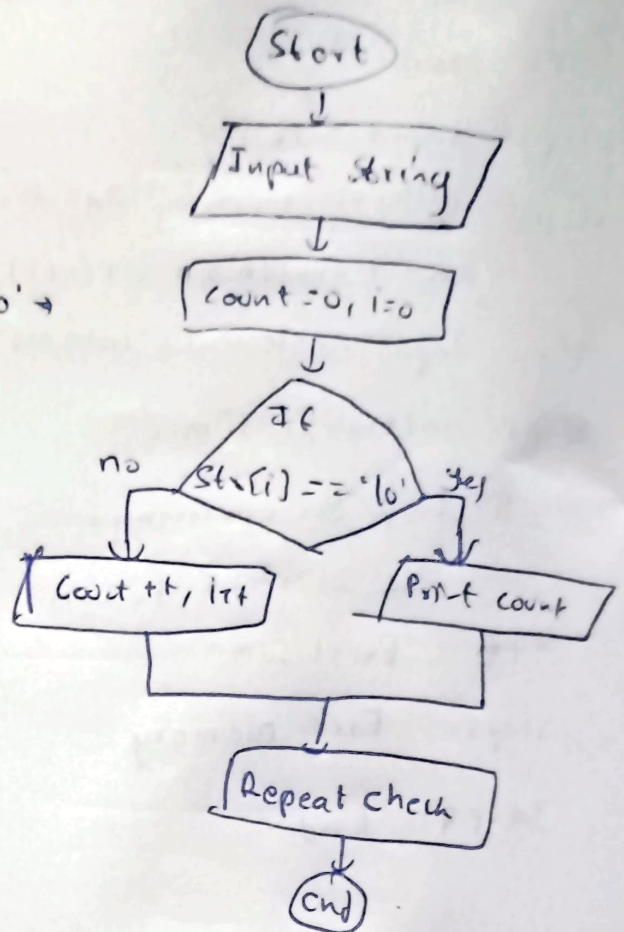 Start
Input string
count = 0, i=0
o'
If
no
Str[i] == '\o'
yes
Count ++, i++
Print count
Repeat check
End